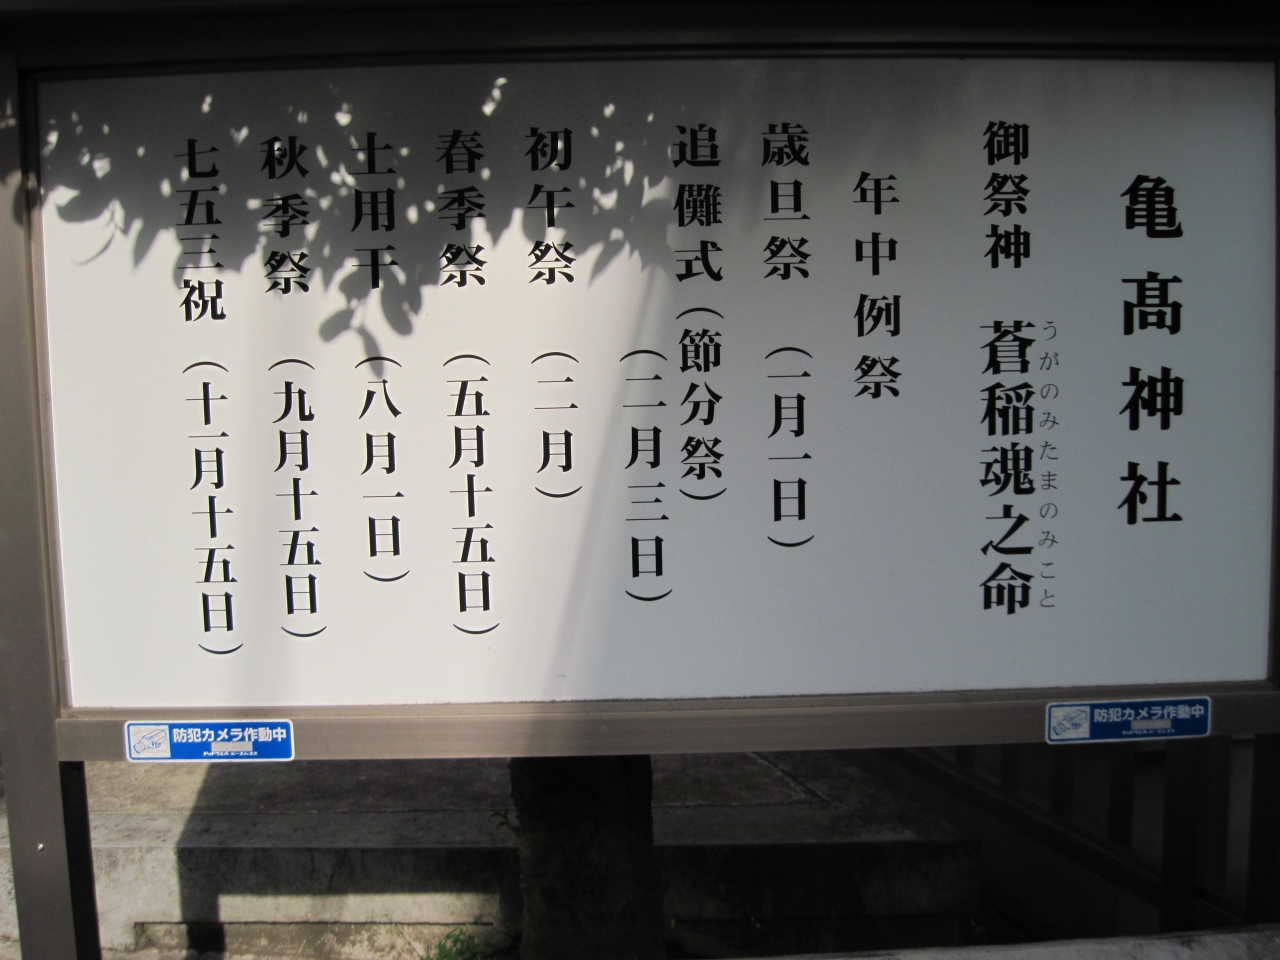 亀髙神社
御祭神　蒼稲魂之命
うがのみたまのみこと
年中例祭
歳旦祭（一月一日）
追儺式（節分祭）
（二月三日）
初午祭（二月）
春季祭（五月十五日）
土用干（八月一日）
秋季祭（九月十五日）
七五三祝（十一月十五日）
防犯カメラ作動中
防犯カメラ作動中